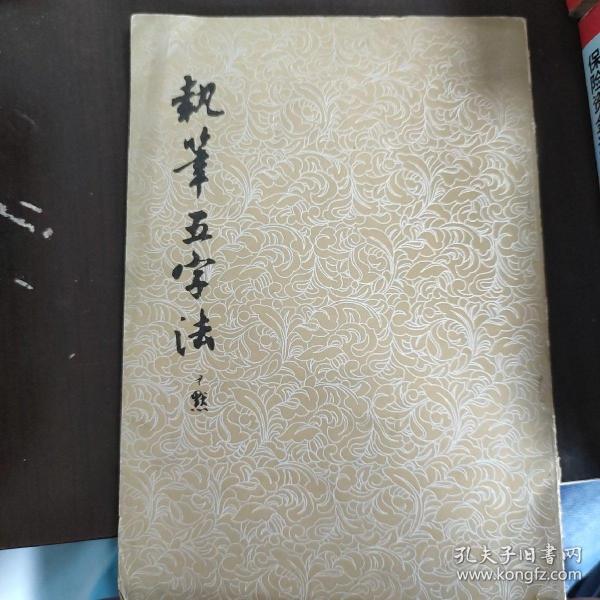 執筆五字法
尹默
孔夫子旧书网
www.kongfz.com